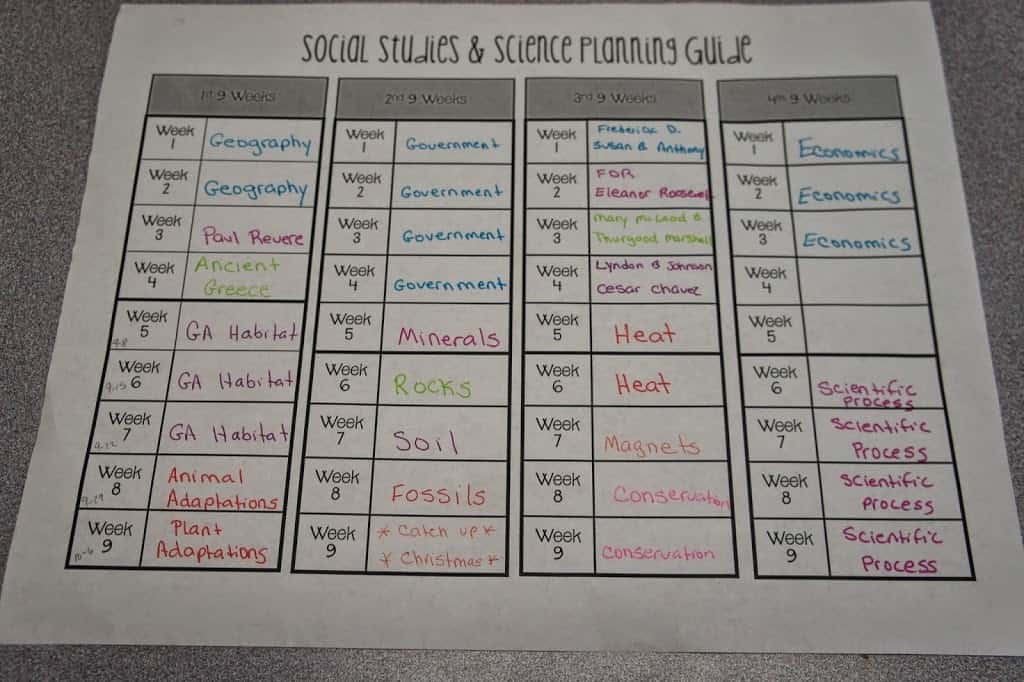 Social Studies & Science Planning Guide
1st 9 Weeks
Week 1 Geography
Week 2 Geography
Week 3 Paul Revere
Week 4 Ancient Greece
Week 5 GA Habitat
9-8
Week 6 GA Habitat
9-15
Week 7 GA Habitat
9-22
Week 8 Animal Adaptations
9-29
Week 9 Plant Adaptations
10-6
2nd 9 Weeks
Week 1 Government
Week 2 Government
Week 3 Government
Week 4 Government
Week 5 Minerals
Week 6 Rocks
Week 7 Soil
Week 8 Fossils
Week 9 * Catch up *
* Christmas *
3rd 9 Weeks
Week 1 Frederick D.
Susan B Anthony
Week 2 FDR
Eleanor Roosevelt
Week 3 Mary McLeod B.
Thurgood Marshall
Week 4 Lyndon B Johnson
Cesar Chavez
Week 5 Heat
Week 6 Heat
Week 7 Magnets
Week 8 Conservation
Week 9 Conservation
4th 9 Weeks
Week 1 Economics
Week 2 Economics
Week 3 Economics
Week 4
Week 5
Week 6 Scientific Process
Week 7 Scientific Process
Week 8 Scientific Process
Week 9 Scientific Process